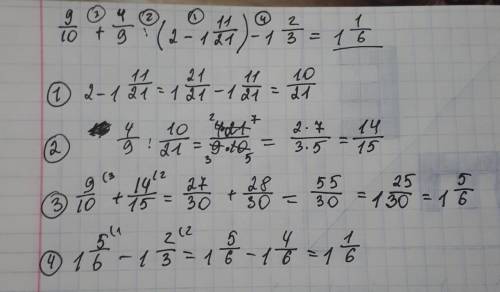 9/10 ③ + 4/9 ② : (2 ① - 1 11/21) ④ - 1 2/3 = 1 1/6
① 2 - 1 11/21 = 1 21/21 - 1 11/21 = 10/21
② 4/9 : 10/21 = 4·21/9·10 = 2·7/3·5 = 14/15
③ 9/10 + 14/15 = 27/30 + 28/30 = 55/30 = 1 25/30 = 1 5/6
④ 1 5/6 - 1 2/3 = 1 5/6 - 1 4/6 = 1 1/6